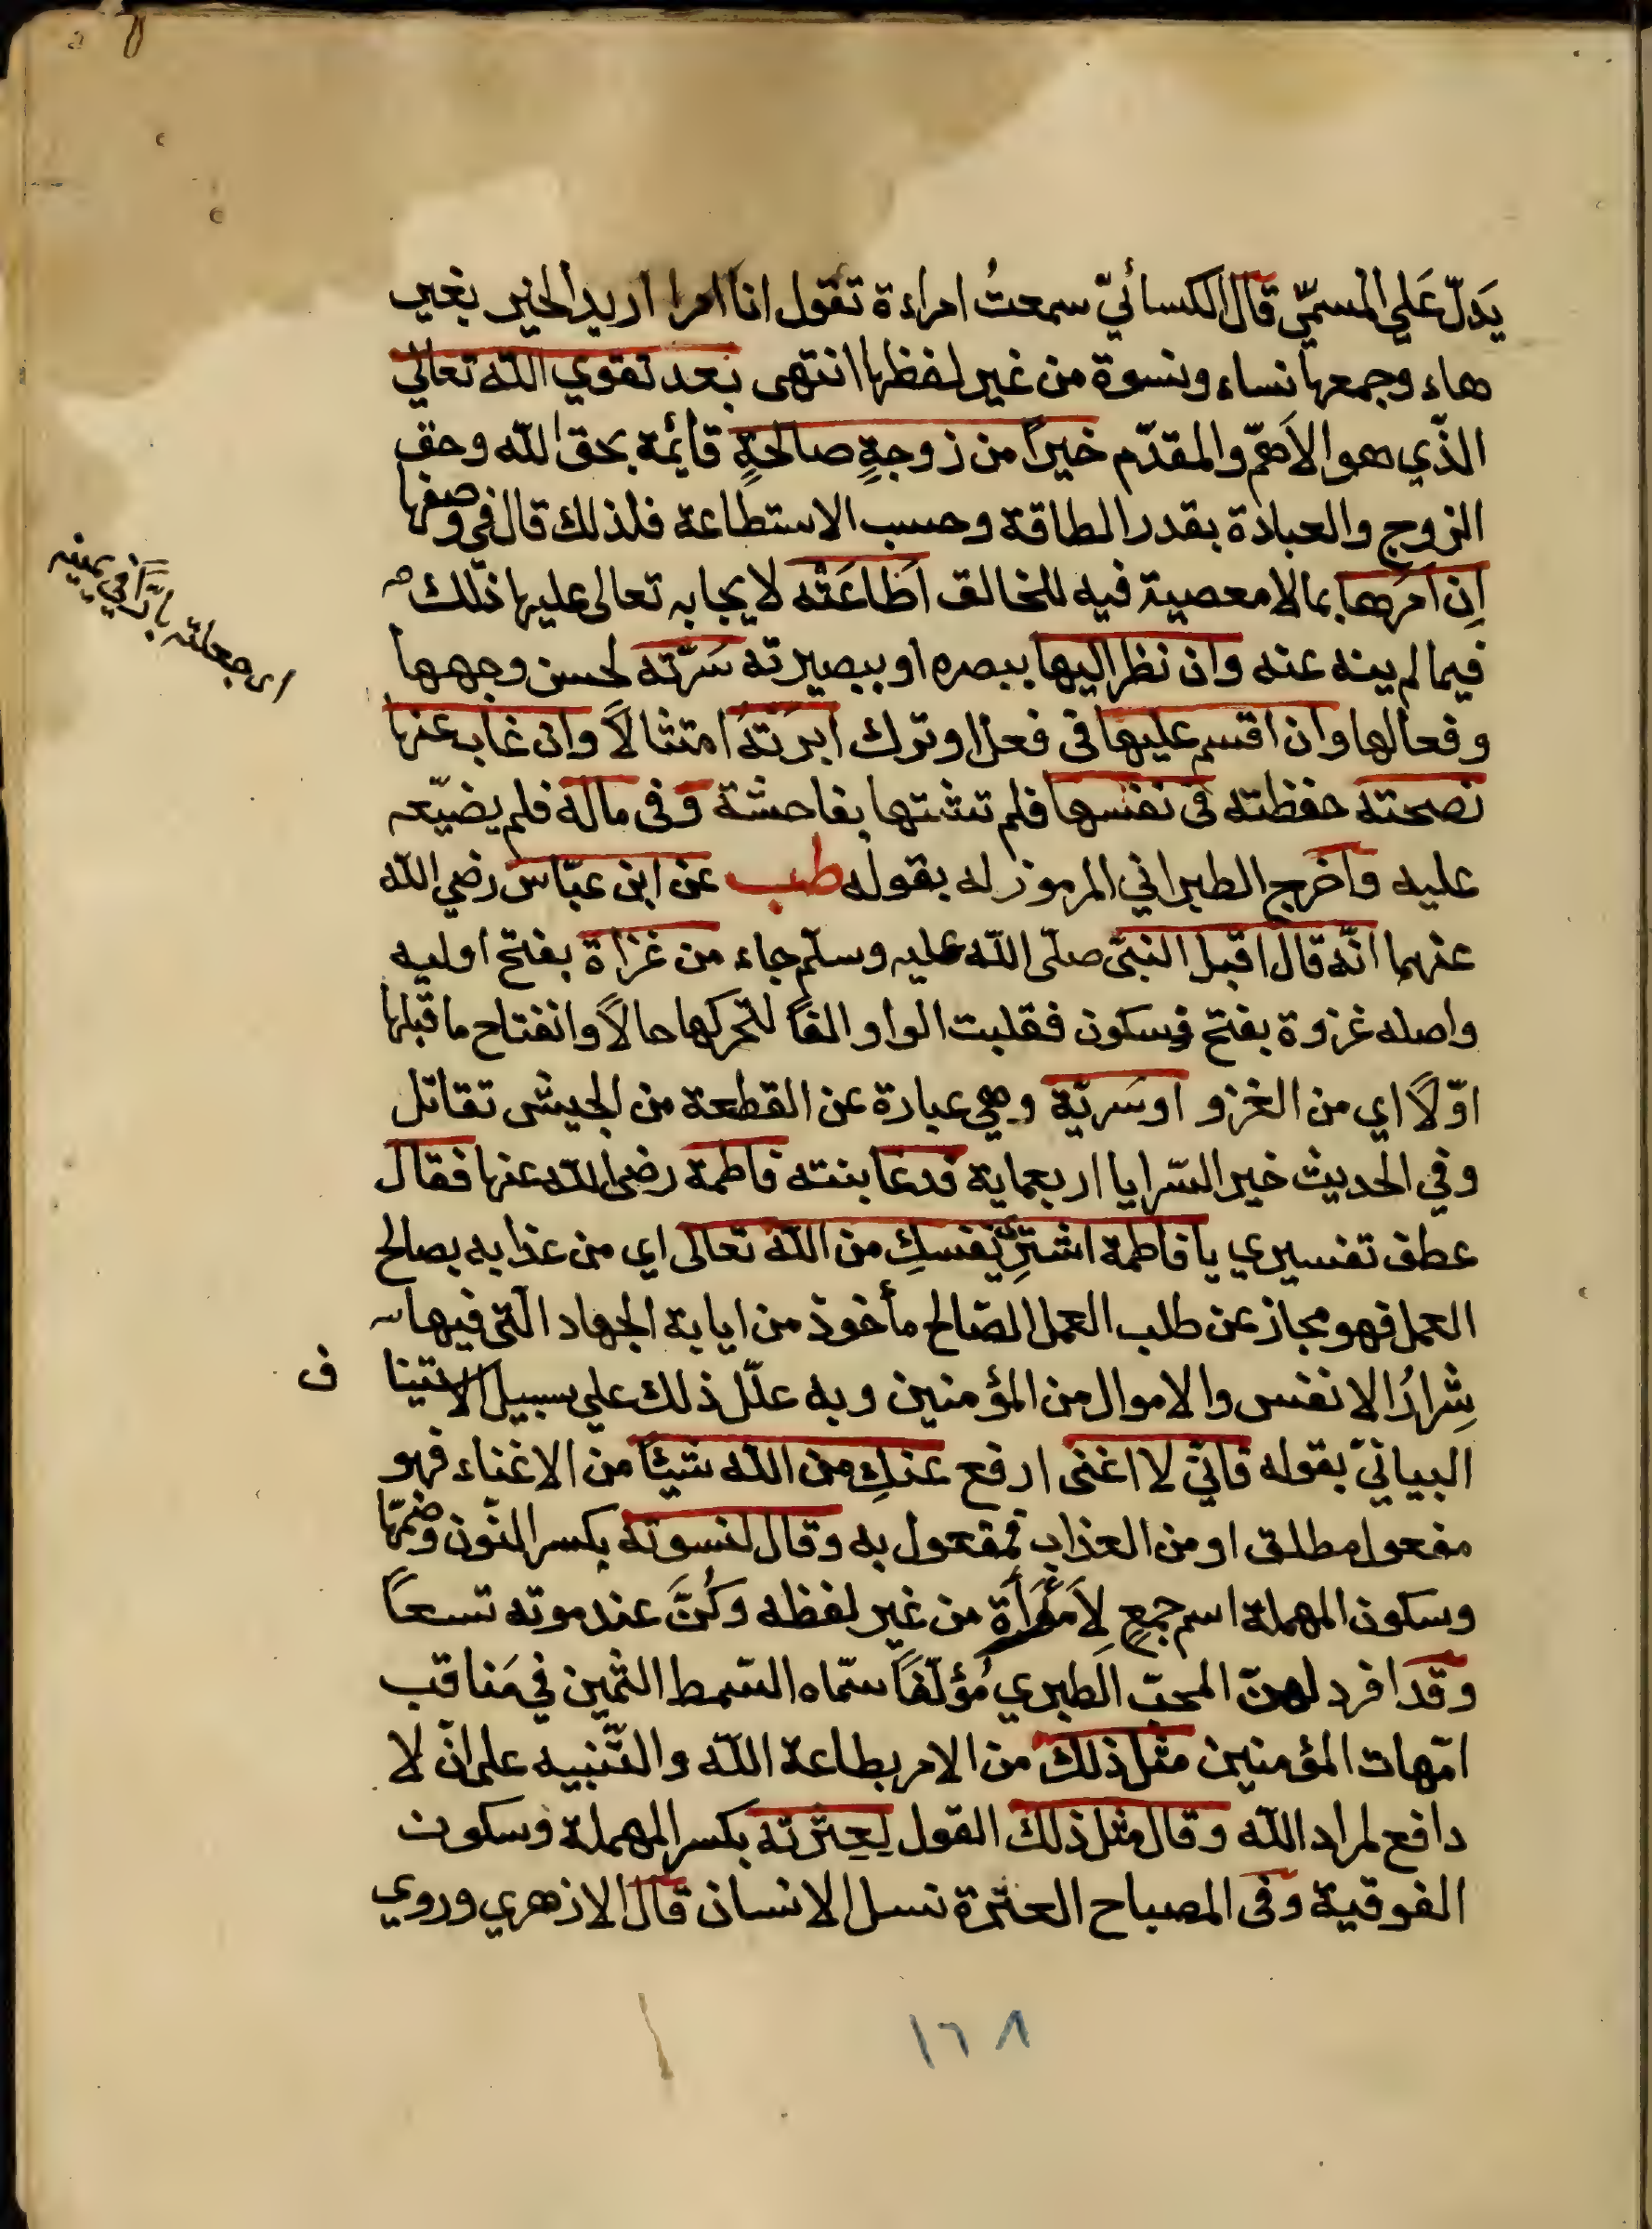 يَدلّ عَلي المسمّي قال الكسائيّ سمعتُ امراءة تقول انا امرا اريد الخير بغير
هاء وجمعها نساء ونسوة من غير لفظها انتهى بعد تقوي الله تعالى
الذّي هو الاَهمّ والمقدّم خيراً من زوجةٍ صالحةٍ قائمة بحق الله وحق
الزوج والعبادة بقدر الطاقة وحسب الاستطاعة فلذلك قال في وصفها
اِن اَمَرَها بما لا معصية فيه للخالق اَطَاعَتْه لايجابه تعالى عليها ذلك
فيما لم ينه عنه وان نظر اليها ببصره او ببصيرته سَرَّته لحسن وجهها
وفعالها وان اقسم عليها في فعل او ترك ابرَتهَ امتثالاً وان غاب عنها
نصحته حفظته في نفسها فلم تشنها بفاحشة وفي ماله فلم يضيّعه
عليه واخرج الطبراني المرموز له بقوله طب عن ابن عبّاس رضي الله
عنهما انّه قال اقبل النبيّ صلّى الله عليه وسلّم جاء من غزاة بفتح اوليه
واصله غزوة بفتح فسكون فقلبت الواو الفاً لتحركها حالاً وانفتاح ما قبلها
اوّلاً اي من الغزو او سَريّة وهي عبارة عن القطعة من الجيش تقاتل
وفي الحديث خير السّرايا اربعماية فدعا بنته فاطمة رضى الله عنها فقال
عطف تفسيري يا فاطمة اشترِي نفسكِ من الله تعالى اي من عذابه بصالح
العمل فهو مجاز عن طلب العمل الصّالح مأخوذ من اياية الجهاد الّتى فيها
شِراءُ الانفس والاموال من المؤمنين وبه علّل ذلك علي سبيل الاستينا
ف
البيانيّ بقوله فانّي لا اغنى ارفع عنكِ من الله شيئاً من الاغناء فهو
مفعول مطلق او من العذاب فمفعول به وقال لنسوته بكسر النّون وضمّها
وسكون المهملة اسم جمع لاَمْرَأة من غير لفظه وكُنَّ عند موته تسعاً
وقد افرد لهنّ المحبّ الطبري مُؤلّفاً سمّاه السّمط الثمين في مَناقب
امّهات المؤمنين مثل ذلك من الامر بطاعة الله والتّنبيه على انّ لا
دافع لمراد الله وقال مثل ذلك القول لعِترته بكسر المهملة وسكون
الفوقية وفى المصباح العترة نسل الانسان قال الازهري وروي
اى جعلته بارّاً في يمينه
١٦٨